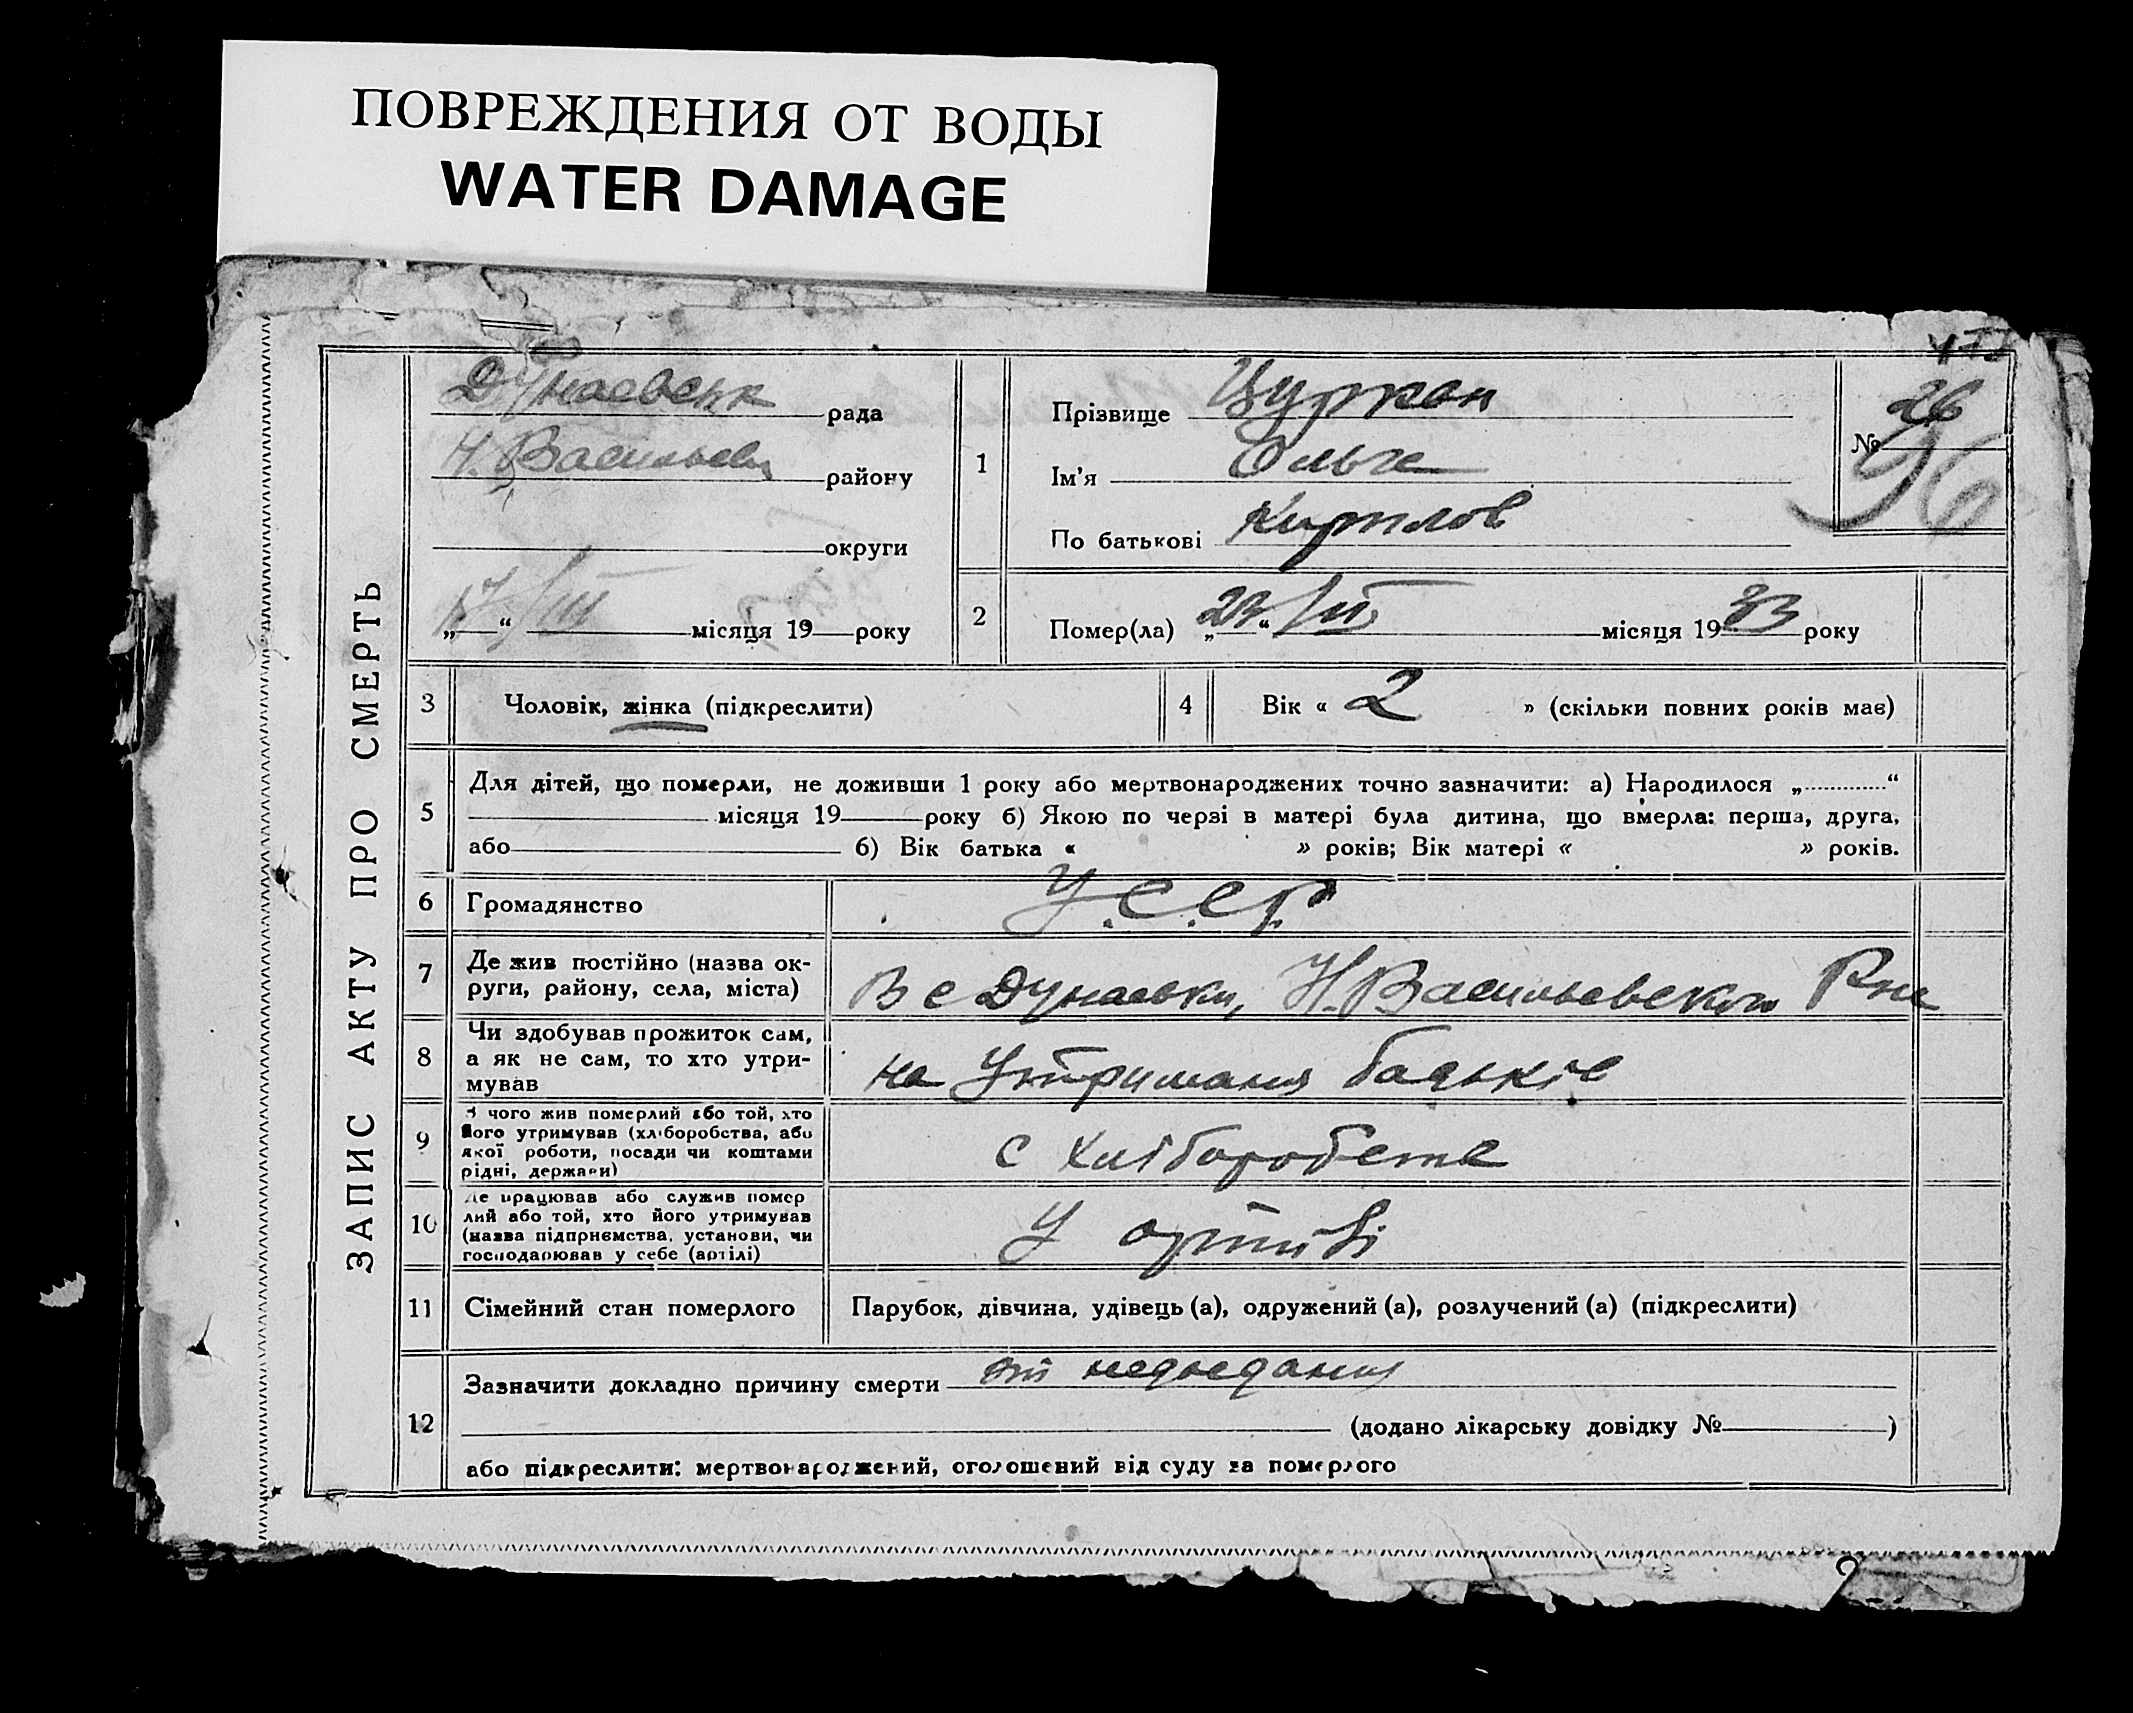 ПОВРЕЖДЕНИЯ ОТ ВОДЫ
WATER DAMAGE
ЗАПИС АКТУ ПРО СМЕРТЬ
Дунаевськ рада
району
округи
„17“ /III місяця 19 року
1
Прізвище Цуркан
Ім'я Ольга
По батькові Кирилов
№ 26
96
2
Помер(ла) „23“ /III місяця 1933 року
3
Чоловік, жінка (підкреслити)
4
Вік « 2 » (скільки повних років має)
5
Для дітей, що померли, не доживши 1 року або мертвонароджених точно зазначити: а) Народилося „ “
місяця 19 року б) Якою по черзі в матері була дитина, що вмерла: перша, друга,
або б) Вік батька « » років; Вік матері « » років.
6
Громадянство У.С.С.Р.
7
Де жив постійно (назва ок-
руги, району, села, міста)
В с Дунаевки, Н.Васильевского Рна
8
Чи здобував прожиток сам,
а як не сам, то хто утри-
мував
на Утриманя батьків
9
З чого жив померлий або той, хто
його утримував (хліборобства, або
якої роботи, посади чи коштами
рідні, держави)
с хліборобства
10
Де працював або служив помер
лий або той, хто його утримував
(назва підприємства, установи, чи
господарював у себе (артілі)
У артілі
11
Сімейний стан померлого
Парубок, дівчина, удівець (а), одружений (а), розлучений (а) (підкреслити)
12
Зазначити докладно причину смерти от недоедания
(додано лікарську довідку № )
або підкреслити: мертвонароджений, оголошений від суду за померлого